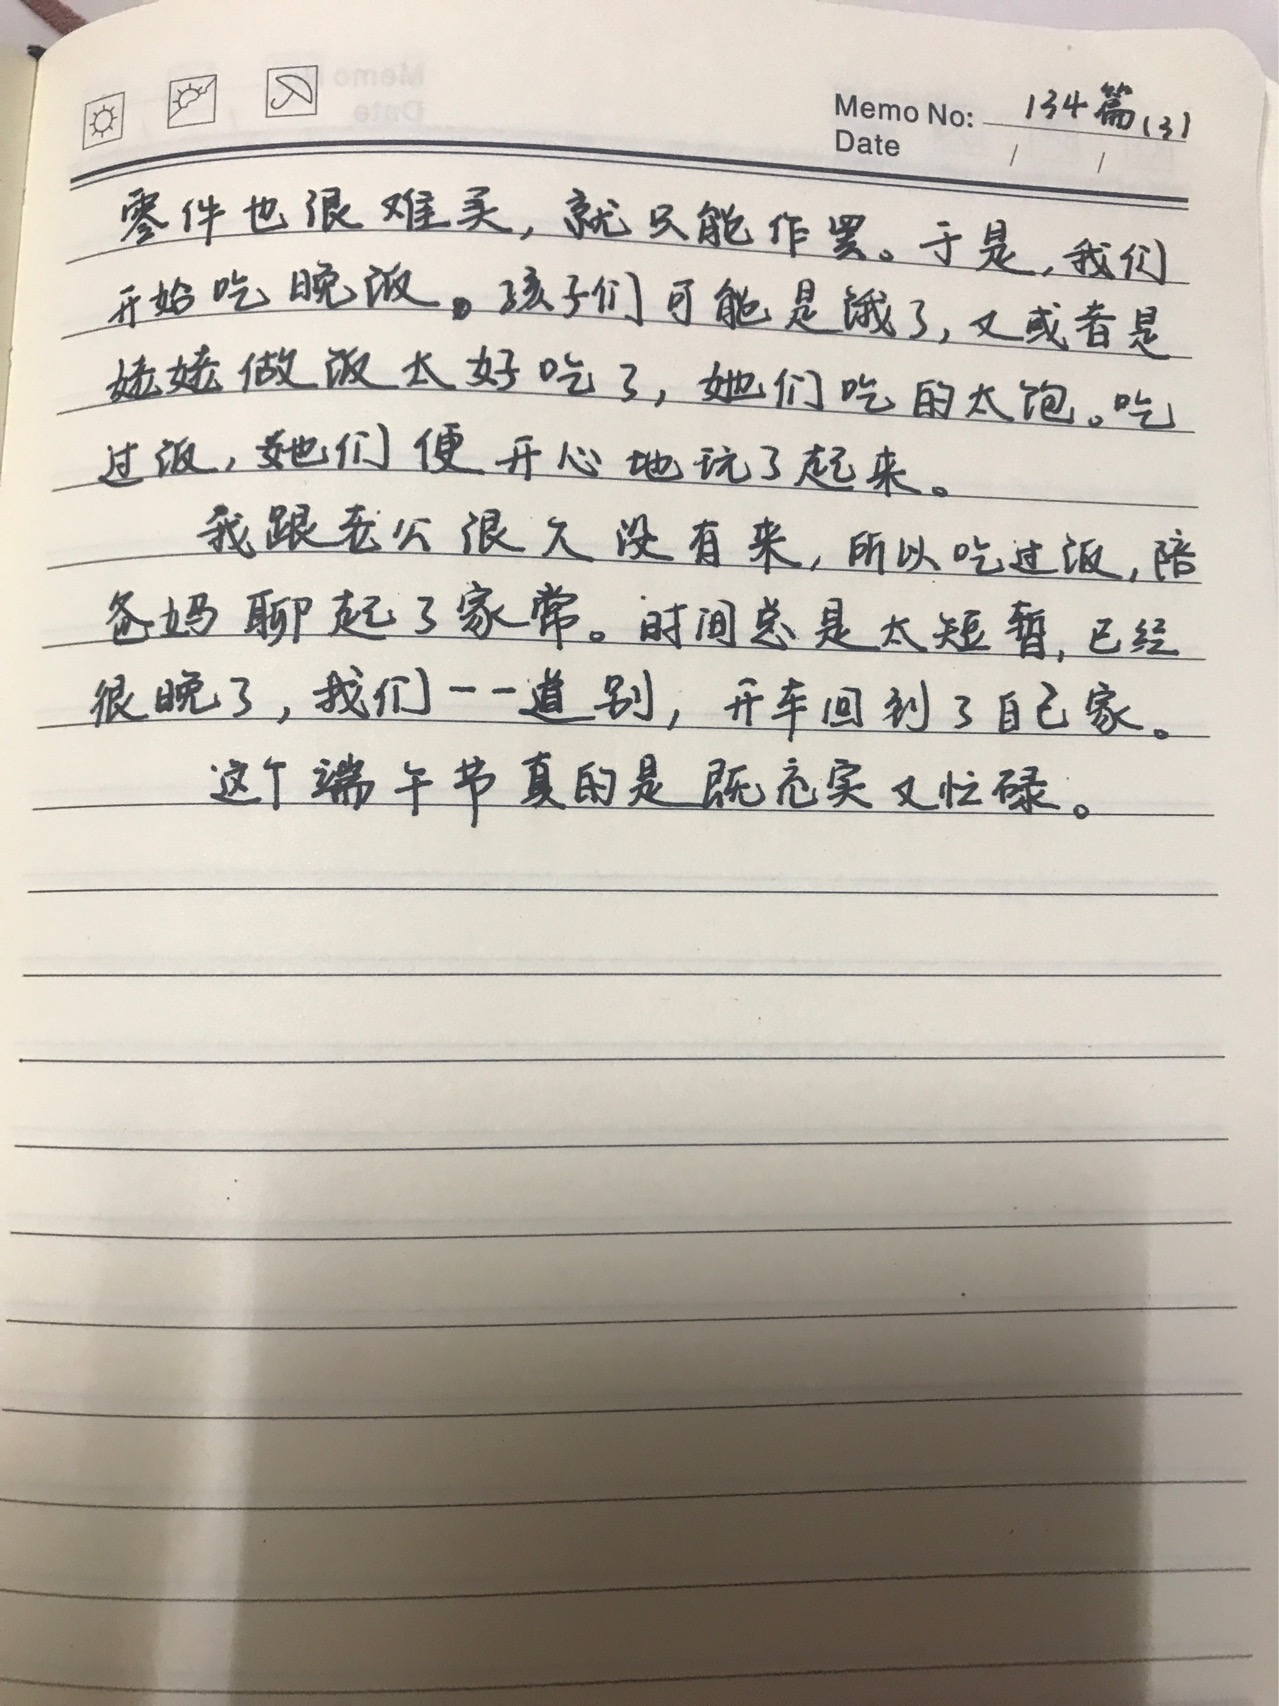 Memo No: 134篇(3)
Date / /
零件也很难买，就只能作罢。于是，我们
开始吃晚饭。孩子们可能是饿了，又或者是
姥姥做饭太好吃了，她们吃的太饱。吃
过饭，她们便开心地玩了起来。
我跟老公很久没有来，所以吃过饭，陪
爸妈聊起了家常。时间总是太短暂，已经
很晚了，我们一一道别，开车回到了自己家。
这个端午节真的是既充实又忙碌。